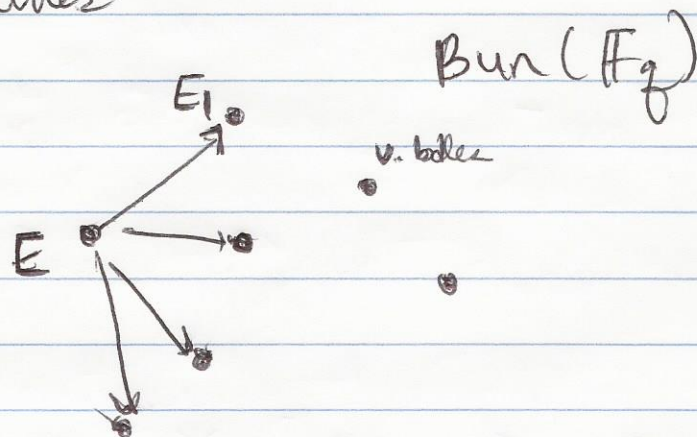 Bun(𝔽q)
E1
v. bdles
E